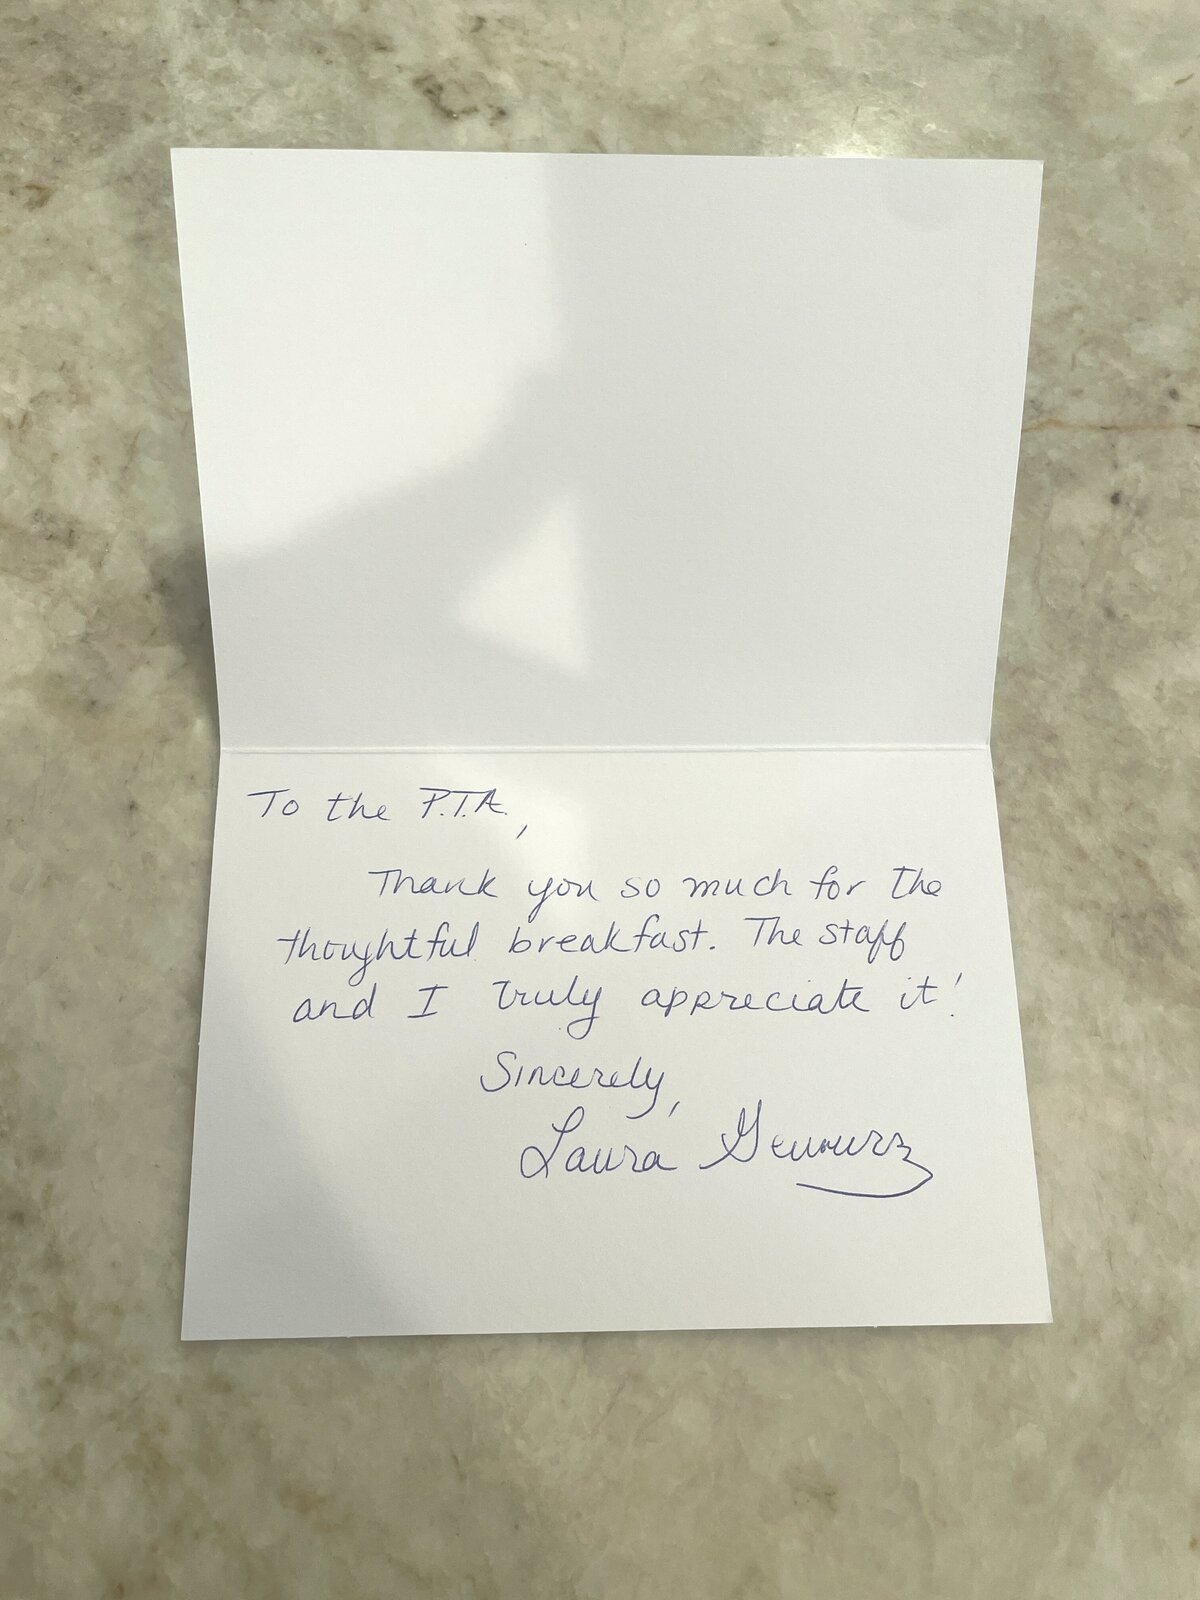 To the P.T.A.,
Thank you so much for the
thoughtful breakfast. The staff
and I truly appreciate it!
Sincerely,
Laura